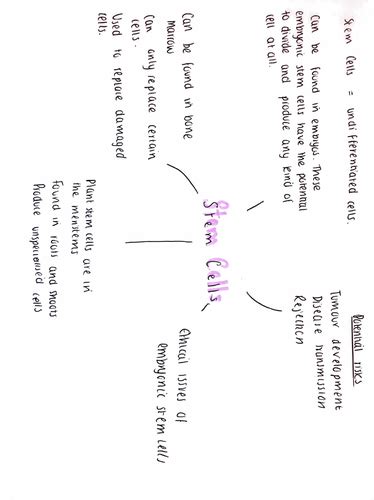 Stem Cells = undifferentiated cells.
Can be found in embryos. These
embryonic stem cells have the potential
to divide and produce any kind of
cell at all.
Can be found in bone
marrow
Can only replace certain
cells.
Used to replace damaged
cells.
Stem Cells
Potential risks
Tumour development
Disease transmission
Rejection
Plant stem cells are in
the meristems
Found in roots and shoots
Produce unspecialised cells
Ethical issues of
embryonic stem cells